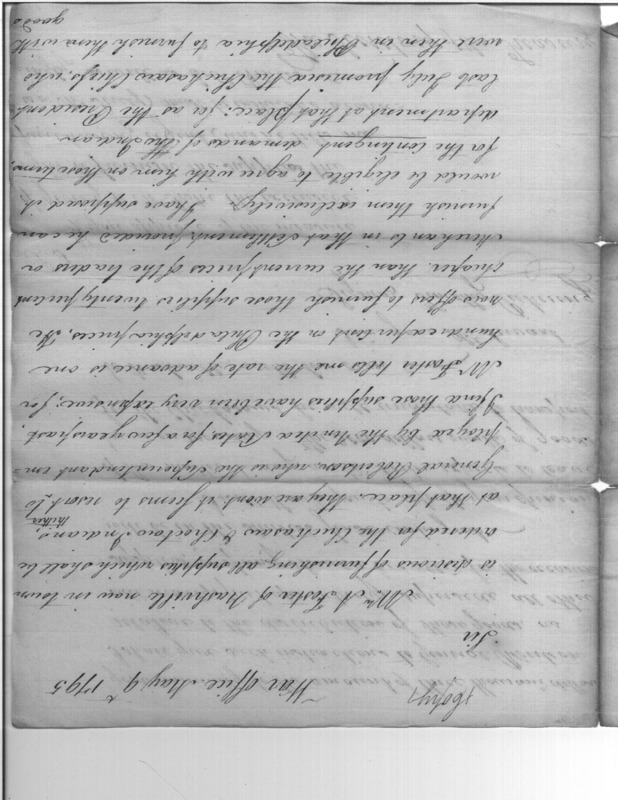 (Copy) War Office May 9th 1795
Sir
Mr A Foster of Nashville now in town
is desirous of furnishing all supplies which shall be
ordered for the Chickasaw & Choctaw Indians,
at that place. thither they are wont it seems to resort, to
General Robertson, who is the Superintendant em=
ployed by the United States, for a few years past.
I find these supplies have been very expensive, for
Mr Foster tells me the rate of advance is one
hundred per Cent on the Philadelphia prices. He
now offers to furnish those supplies twenty per Cent
cheaper than the current prices of the traders or
Merchants in that settlement, provided he can
furnish them exclusively. I have supposed it
would be eligible to agree with him on those terms,
for the Contingent demands of the Indian
department at that place; for as the President
last July promised the Chickasaw Chiefs, who
were then in Philadelphia to furnish them with
goods